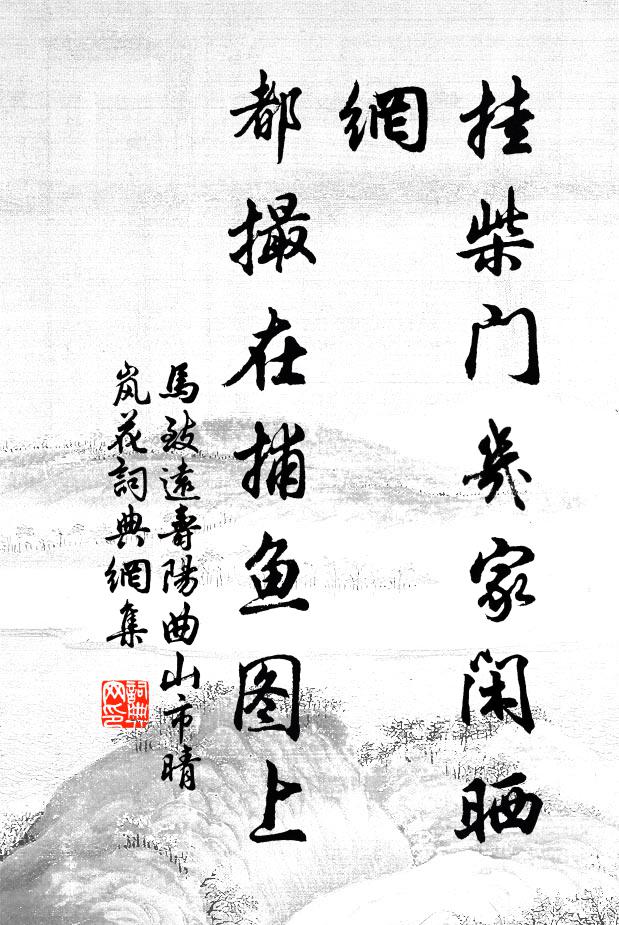 挂柴门幾家闲晒
網
都撮在捕鱼图上
馬致遠壽陽曲山市晴
岚花詞典網集
詞典網印